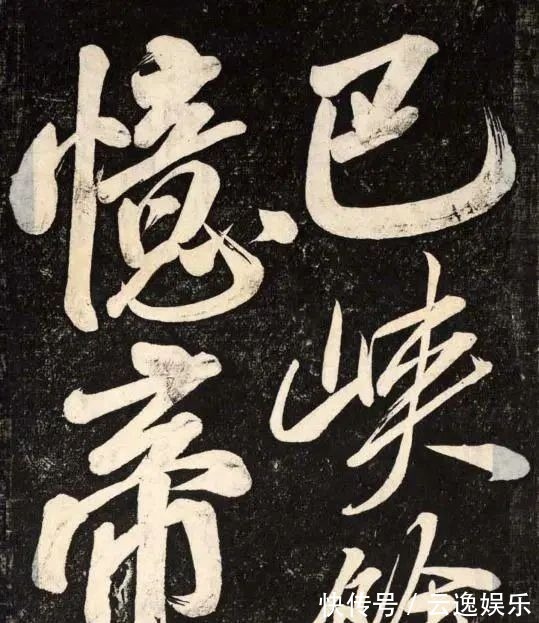 巴峽
憶帝
快传号 / 云逸娱乐